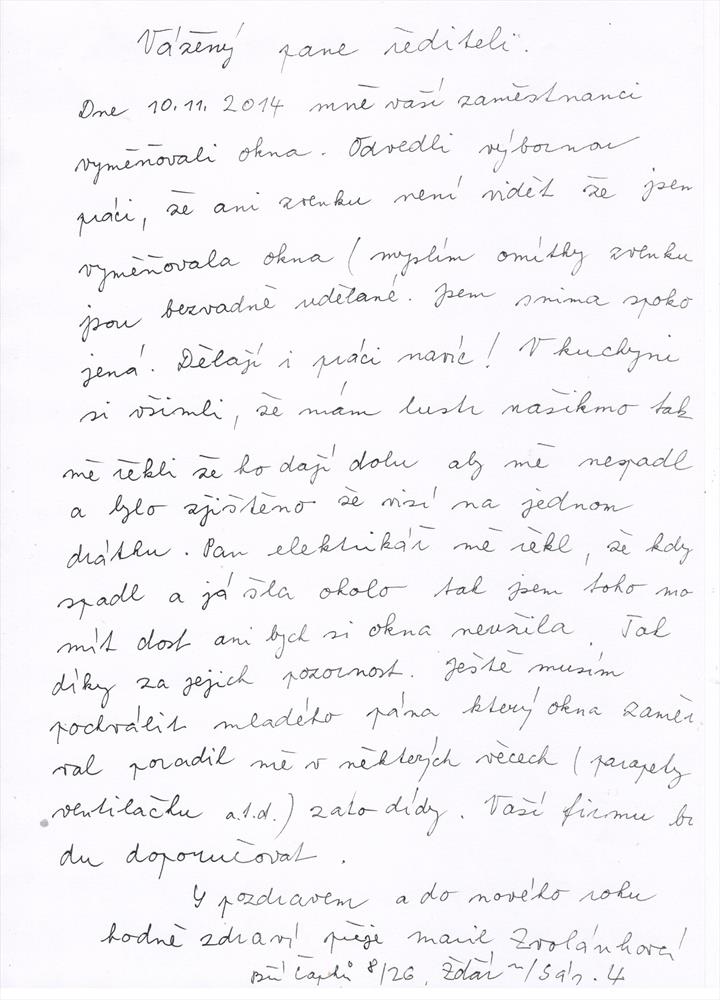 Vážěný pane řediteli.
Dne 10.11. 2014 mně vaší zaměstnanci
vyměňovali okna. Odvedli výbornou
práci, že ani zvenku není vidět že jsem
vyměňovala okna (myslím omítky zvenku
jsou bezvadně udělané. Jsem snima spoko
jená. Dělají i práci navíc! V kuchyni
si všimli, že mám lustr našikmo tak
mě řekli že ho dají dolu aby mě nespadl
a bylo zjištěno že visí na jednom
drátku. Pan elektrikář mě řekl, že kdy
spadl a já šla okolo tak jsem toho mo
mít dost ani bych si okna neužila. Tak
díky za jejich pozornost. Ještě musím
pochválit mladého pána který okna zaměř
val poradil mě v některých věcech (parapety
ventilačku a.t.d.) zato dídy. Vaší firmu bu
du doporučovat.
S pozdravem a do nového roku
hodně zdraví přeje Zvolánková
Bří Čapků 8/26, Žďár n/Sáz. 4